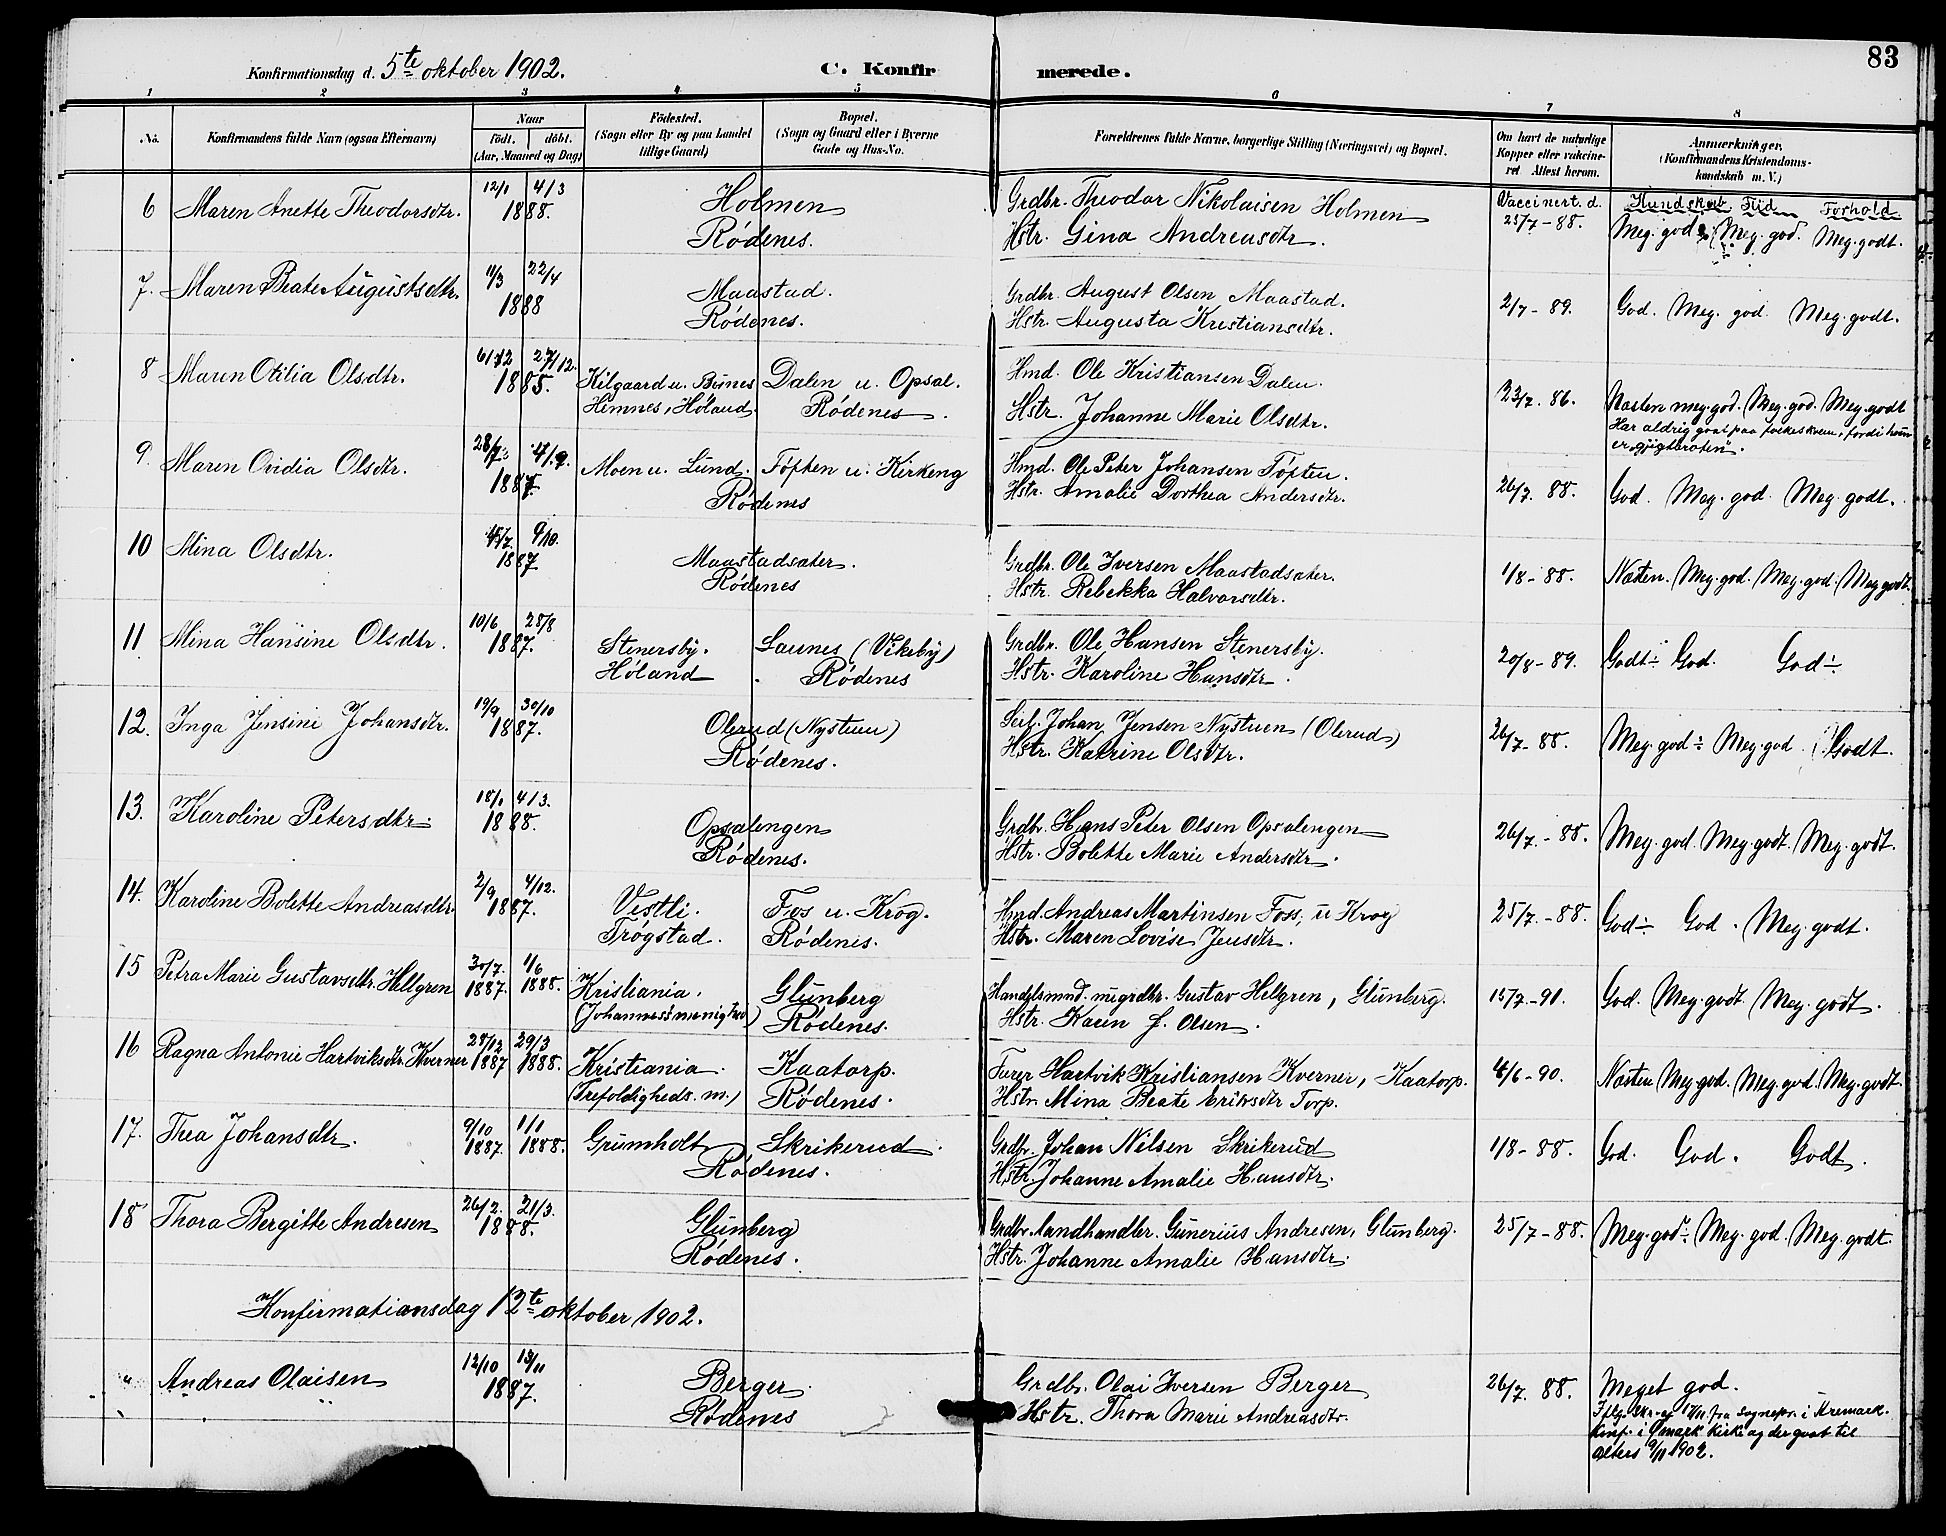 83
Konfirmationsdag d. 5te oktober 1902. C. Konfirmerede.
1 2 3 4 5 6 7 8
No. Konfirmandens fulde Navn (ogsaa Efternavn) Naar Fødested. Bopæl. Forældrenes fulde Navne, borgerlige Stilling (Næringsvei) og Bopæl. Om havt de naturlige Anmærkninger.
født. døbt. (Sogn eller By og paa Landet (Sogn og Gaard eller i Byerne Kopper eller vakcine- (Konfirmandens Kristendoms-
(Aar, Maaned og Dag) tillige Gaard) Gade og Hus-No. ret. Attest herom. kundskab m. V.)
6 Maren Anette Theodorsdtr. 12/1 4/3 Holmen Grdbr. Theodor Nikolaisen Holmen Vaccinert. d. Kundskab Flid Forhold
1888. Rødenes. Hstr. Gina Andreasdtr. 25/7-88. Meg. god Meg. god. Meg. godt.
7. Maren Beate Augustsdtr. 11/3 22/4 Maastad. Grdbr. August Olsen Maastad. 2/7-89. God. Meg. god. Meg. godt.
1888 Rødenes. Hstr. Augusta Kristiansdtr.
8 Maren Otilia Olsdtr. 6/12 27/12. Kilgaard u. Dalen u. Opsal. Hmd. Ole Kristiansen Dalen. 23/7. 86. Næsten meg. god. Meg. god. Meg. godt
1885. Hemnes, Høland Rødenes. Hstr. Johanne Marie Olsdtr. Har aldrig gaat paa folkeskolen, fordi hun
er gigtbroten.
9. Maren Ovidia Olsdtr. Moen u. Lund. Toften u. Kirkeng Hmd. Ole Peter Johansen Toften. 26/7. 88. God. Meg. god. Meg. godt.
1887 Rødenes Hstr. Amalie Dorthea Andersdtr.
10 Mina Olsdtr. 9/10. Maastadsæter. Grdbr. Ole Iversen Maastadsæter. 1/8-88. Næsten. Meg. god. Meg. god. Meg. godt.
1887 Rødenes Hstr. Rebekka Halvorsdtr.
11 Mina Hansine Olsdtr. 10/6 28/8 Stenersby. Launes (Vikeby) Grdbr. Ole Hansen Stenersby. 20/8-89. Godt÷ God. God÷
1887. Høland. Rødenes Hstr. Karoline Hansdtr.
12. Inga Jensine Johansdtr. 19/9 30/10 Olerud (Nystuen) Johan Jensen Nystuen (Olerud) 26/7-88. Meg. god÷ Meg. god. Godt.
1887. Rødenes. Hstr. Katrine Olsdtr.
13. Karoline Petersdtr. 18/1 4/3. Opsalengen Grdbr. Hans Peter Olsen Opsalengen 26/7.-88. Meg. god. Meg. godt. Meg. godt.
1888. Rødenes. Hstr. Bolette Marie Andersdtr.
14. Karoline Bolette Andreasdtr. 2/9 4/12. Vestli. Fos u. Krog. Hmd. Andreas Martinsen Foss, u Krog 25/7.-88. God÷ God. Meg. godt.
1887. Trøgstad. Rødenes. Hstr. Maren Lovise Jensdtr.
15 Petra Marie Gustavsdtr. Hellgren 30/7. 1/6 Kristiania. Glünberg Handelsmnd. nu grdbr. Gustav Hellgren, Glünberg. 15/7-91. God. Meg. godt. Meg. godt.
1887. 1888. (Johannesmenighed) Rødenes. Hstr. Karen J. Olsen.
16 Ragna Antonie Hartviksdtr. Kverner 28/12 29/3 Kristiania. Kaatorp. Furer Hartvik Kristiansen Kverner, Kaatorp. 4/6-90. Næsten Meg. god. Meg. god. Meg. godt.
1887 1888. (Trefoldigheds. m.) Rødenes. Hstr. Mina Beate Eriksdtr Torp.
17. Thea Johansdtr. 9/10 1/1 Grümholt Skrikerud. Grdbr. Johan Nilsen Skrikerud 1/8-88. God. God. Godt.
1887. 1888. Rødenes. Hstr. Johanne Amalie Hansdtr.
18 Thora Bergitte Andresen 26/2. 21/3. Glünberg Grdbr. Landhandler. Gunerius Andresen, Glünberg. 25/7-88. Meg. god÷ Meg. god. Meg. godt.
1888. Rødenes. Hstr. Johanne Amalie Hansdtr.
Konfirmationsdag 12te oktober 1902.
" Andreas Olaisen 12/10 13/11 Berger. Grdbr. Olai Iversen Berger 26/7. 88. Meget god.
1887. Rødenes Hstr. Thora Marie Andreasdtr. Iflg. skr. af 17/11 fra sognepr. i Aremark.
Konf. i Ømark kirke og der gaat til
alters 9/11 1902.